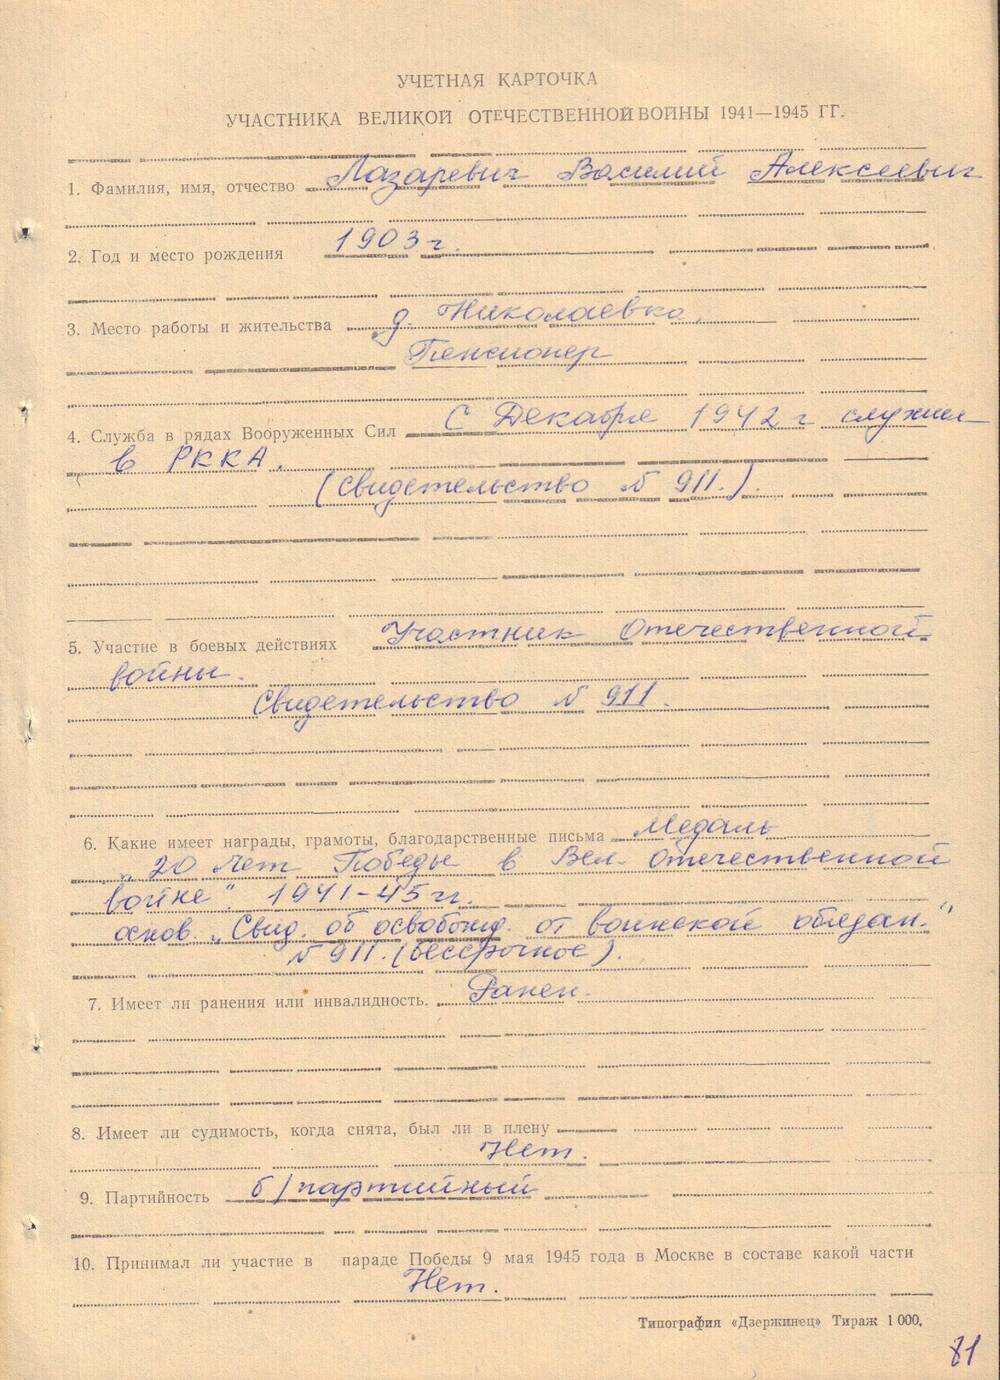 УЧЕТНАЯ КАРТОЧКА
УЧАСТНИКА ВЕЛИКОЙ ОТЕЧЕСТВЕННОЙ ВОЙНЫ 1941—1945 ГГ.
1. Фамилия, имя, отчество Лазаревич Василий Алексеевич
2. Год и место рождения 1903 г.
3. Место работы и жительства д. Николаевка,
Пенсионер
4. Служба в рядах Вооруженных Сил С Декабря 1942 г служил
в РККА.
(Свидетельство № 911.).
5. Участие в боевых действиях Участник Отечественной
войны.
Свидетельство № 911.
6. Какие имеет награды, грамоты, благодарственные письма Медаль
„20 лет Победы в Вел. Отечественной
войне". 1941-45 гг.
основ. „Свид. об освобожд. от воинской обязан."
№ 911. (бессрочное).
7. Имеет ли ранения или инвалидность. Ранен.
8. Имеет ли судимость, когда снята, был ли в плену
Нет.
9. Партийность б/партийный
10. Принимал ли участие в параде Победы 9 мая 1945 года в Москве в составе какой части
Нет.
Типография «Дзержинец» Тираж 1 000.
81